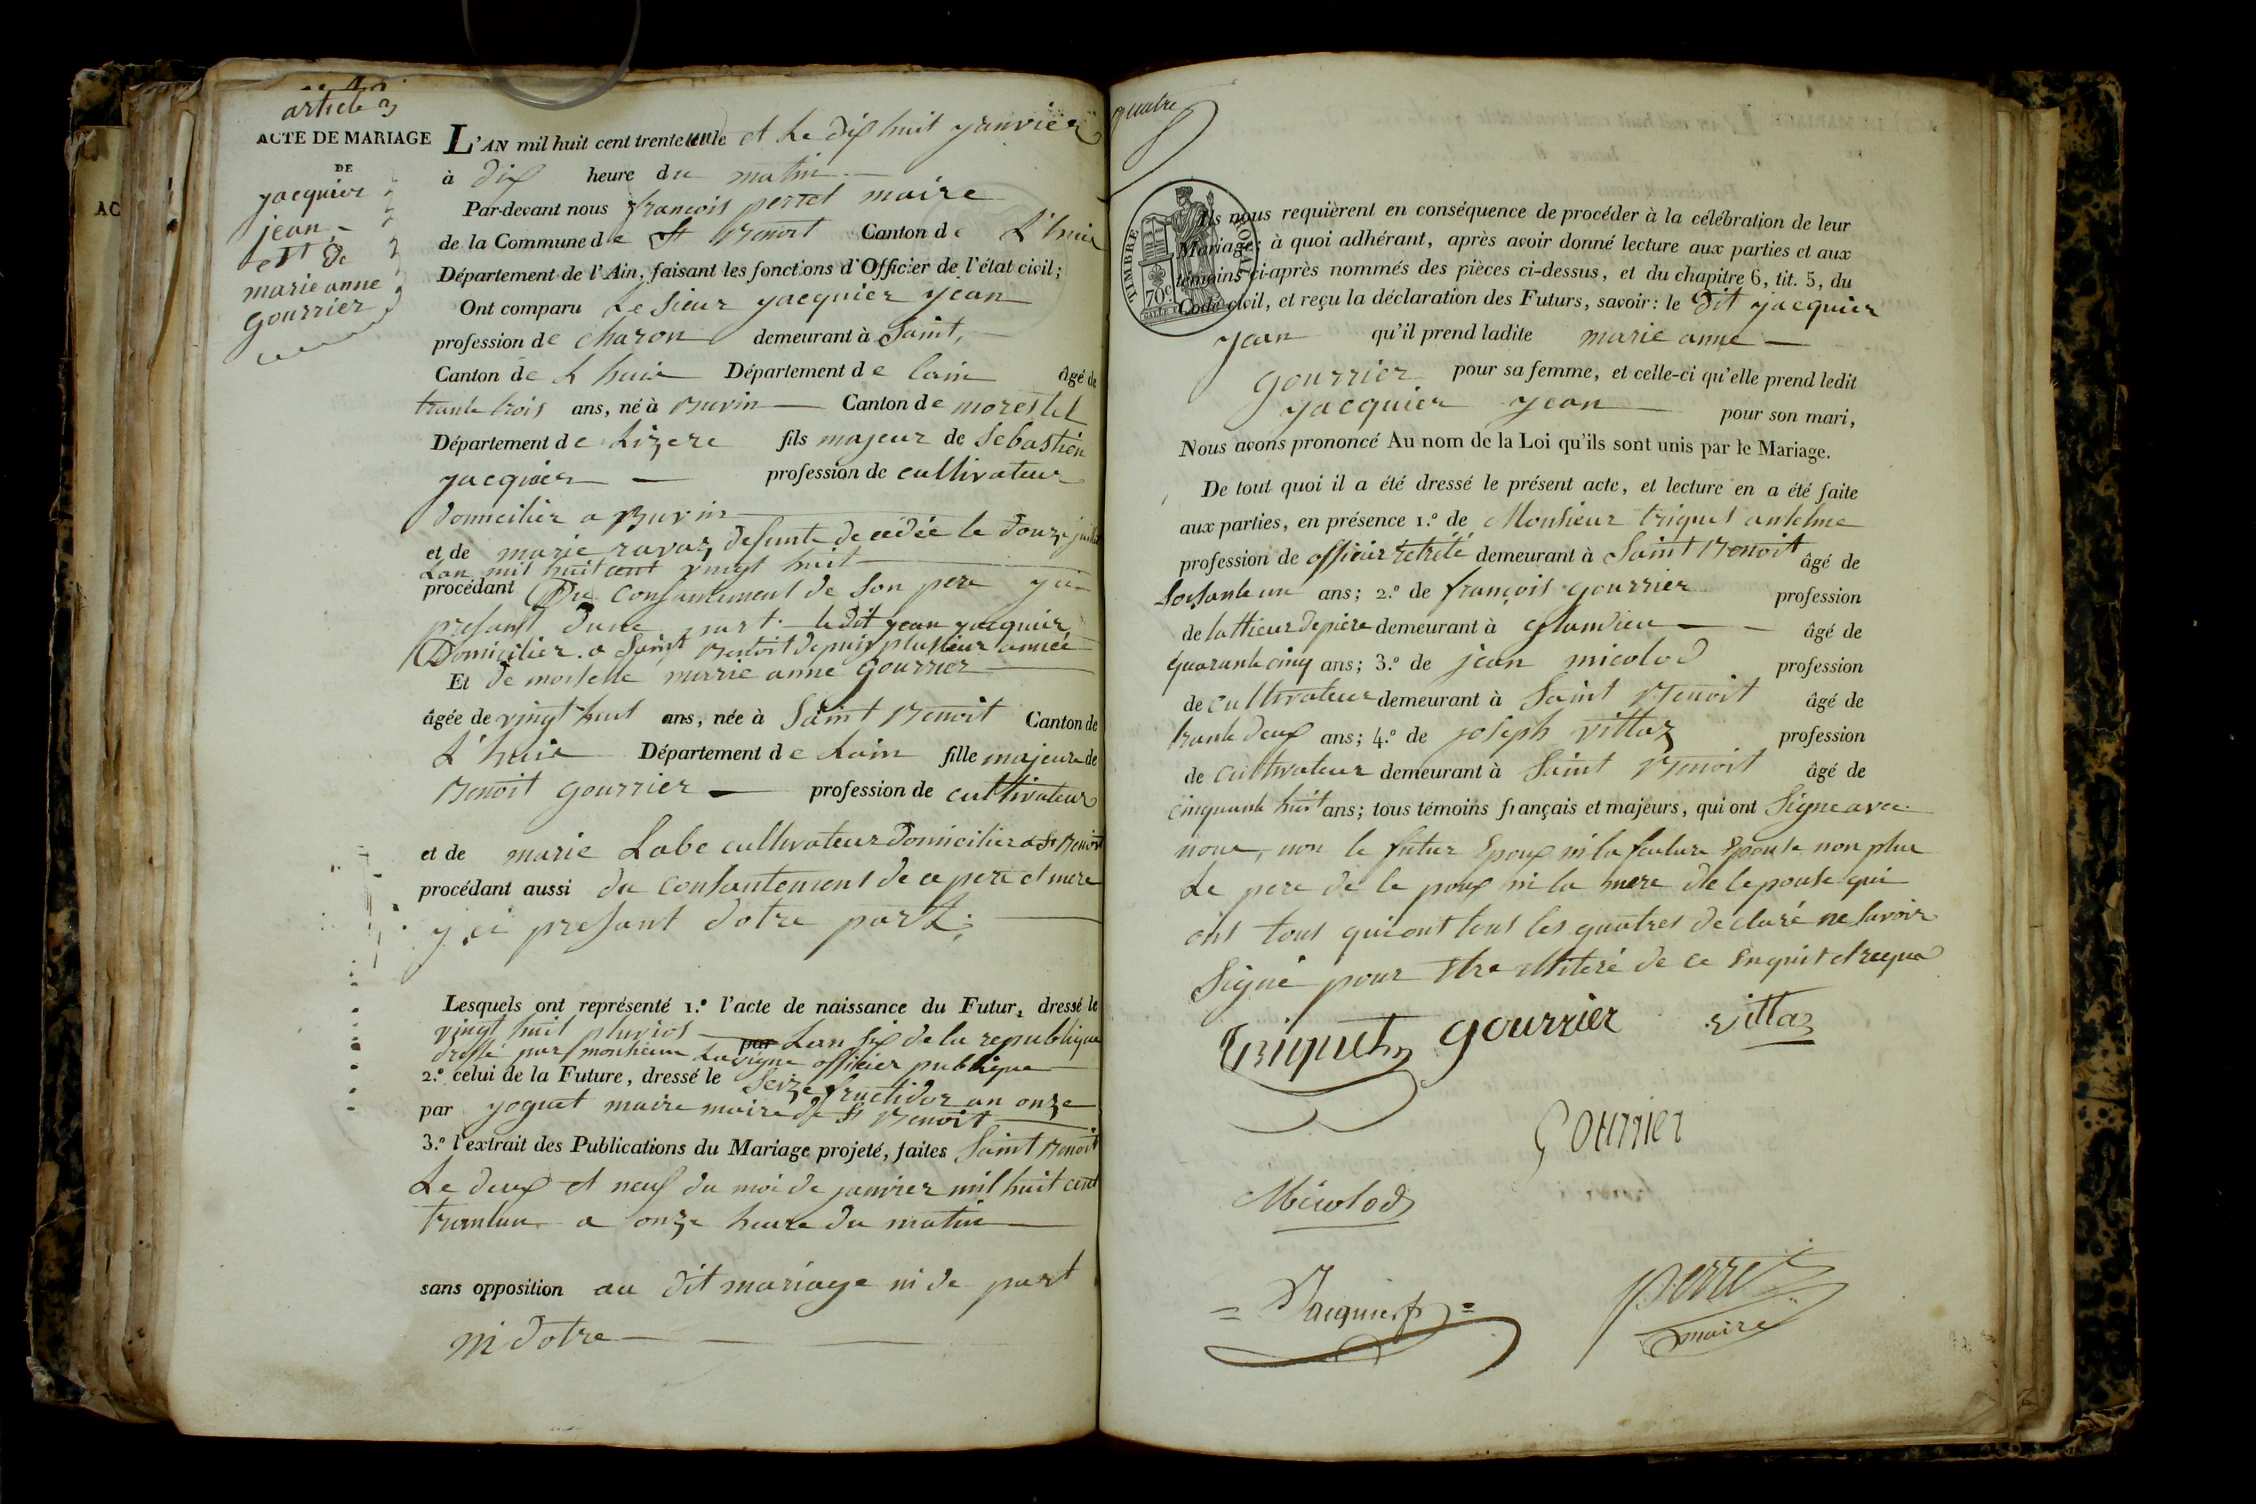 article 3
ACTE DE MARIAGE
DE
jacquier
jean
et de
marie anne
gourrier
L'AN mil huit cent trente unle et Le dix huit janvier
à dix heure du matin
Par-devant nous françois perret maire
de la Commune de St Benoit Canton de L'huis
Département de l'Ain, faisant les fonctions d'Officier de l'état civil;
Ont comparu Le Sieur jacquier jean
profession de charon demeurant à Saint,
Canton de L huis Département de lain âgé de
trante trois ans, né à Buvin Canton de morestel
Département de Lizere fils majeur de Sebastien
jacquier profession de cultivateur
domicilier a Buvin
et de marie ravaz defunte decédée le douze juillet
Lan mil huit cent vingt huit
procédant Du consantement de son pere
presant dune part. le dit jean jacquier
Domicilier a Saint Benoit depuis plusieur année
Et de moiselle marie anne gourrier
âgée de vingt huit ans, née à Saint Benoit Canton de
L'huis Département de Lain fille majeure de
Benoit gourrier profession de cultivateur
et de marie Labe cultivateur Domicilier a St Benoit
procédant aussi du consantement de ce pere et mere
y ci presant dotre part;
Lesquels ont représenté 1.º l'acte de naissance du Futur, dressé le
vingt huit pluvios par Lan six de la republique
dressé par monsieur Lavigne officier publique
2.º celui de la Future, dressé le Seize fructidor an onze
par joguet maire maire de St Benoit
3.º l'extrait des Publications du Mariage projeté, faites Saint Benoit
Le deux et neuf du moi de janvier mil huit cent
trantun a onze heure du matin
sans opposition au dit mariage ni de part
ni dotre
quatre
TIMBRE ROYAL
70c
Ils nous requièrent en conséquence de procéder à la célébration de leur
Mariage; à quoi adhérant, après avoir donné lecture aux parties et aux
témoins ci-après nommés des pièces ci-dessus, et du chapitre 6, tit. 5, du
Code civil, et reçu la déclaration des Futurs, savoir: le Dit jacquier
jean qu'il prend ladite marie anne
gourrier pour sa femme, et celle-ci qu'elle prend ledit
jacquier jean pour son mari,
Nous avons prononcé Au nom de la Loi qu'ils sont unis par le Mariage.
De tout quoi il a été dressé le présent acte, et lecture en a été faite
aux parties, en présence 1.º de Monsieur triquet antelme
profession de officier retreté demeurant à Saint Benoit âgé de
soisante un ans; 2.º de françois gourrier profession
de tattieur de piere demeurant à glandieu âgé de
quarante cinq ans; 3.º de jean micolod profession
de cultivateur demeurant à Saint Benoit âgé de
trante deux ans; 4.º de joseph vittaz profession
de cultivateur demeurant à Saint Benoit âgé de
cinquante huit ans; tous témoins français et majeurs, qui ont Signe avec
nous, non le futur Epoux ni la feuture Epouse non plus
Le pere de le poux ni la mere de le pouse qui
ont tous qui ont tous les quatres declaré ne savoir
Signé pour etre illiteré de ce enquit et requi
Triquet gourrier vittaz
Gourrier
Micolod
Jacquier fr
perret
maire